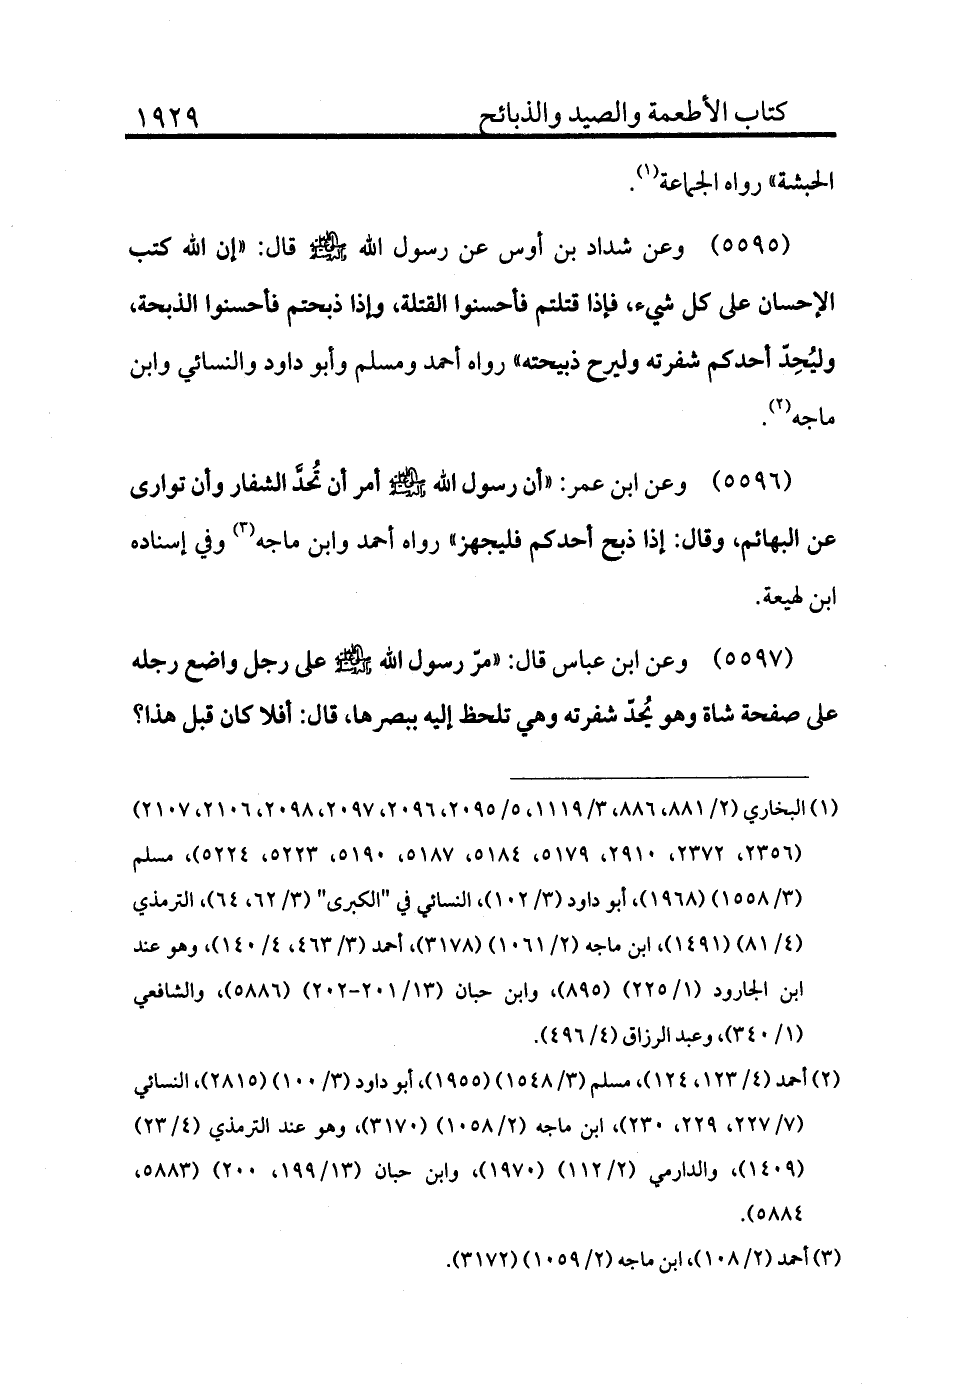 كتاب الأطعمة والصيد والذبائح ١٩٢٩
الحبشة» رواه الجماعة(١).
(٥٥٩٥) وعن شداد بن أوس عن رسول الله ﷺ قال: «إن الله كتب
الإحسان على كل شيء، فإذا قتلتم فأحسنوا القتلة، وإذا ذبحتم فأحسنوا الذبحة،
وليُحِدّ أحدكم شفرته وليرح ذبيحته» رواه أحمد ومسلم وأبو داود والنسائي وابن
ماجه(٢).
(٥٥٩٦) وعن ابن عمر: «أن رسول الله ﷺ أمر أن تُحدَّ الشفار وأن توارى
عن البهائم، وقال: إذا ذبح أحدكم فليجهز» رواه أحمد وابن ماجه(٣) وفي إسناده
ابن لهيعة.
(٥٥٩٧) وعن ابن عباس قال: «مرّ رسول الله ﷺ على رجل واضع رجله
على صفحة شاة وهو يُحدّ شفرته وهي تلحظ إليه ببصرها، قال: أفلا كان قبل هذا؟
(١) البخاري (٢/ ٨٨١، ٨٨٦، ٣/ ١١١٩، ٥/ ٢٠٩٥، ٢٠٩٦، ٢٠٩٧، ٢٠٩٨، ٢١٠٦، ٢١٠٧)
(٢٣٥٦، ٢٣٧٢، ٢٩١٠، ٥١٧٩، ٥١٨٤، ٥١٨٧، ٥١٩٠، ٥٢٢٣، ٥٢٢٤)، مسلم
(٣/ ١٥٥٨) (١٩٦٨)، أبو داود (٣/ ١٠٢)، النسائي في "الكبرى" (٣/ ٦٢، ٦٤)، الترمذي
(٤/ ٨١) (١٤٩١)، ابن ماجه (٢/ ١٠٦١) (٣١٧٨)، أحمد (٣/ ٤٦٣، ٤/ ١٤٠)، وهو عند
ابن الجارود (١/ ٢٢٥) (٨٩٥)، وابن حبان (١٣/ ٢٠١-٢٠٢) (٥٨٨٦)، والشافعي
(١/ ٣٤٠)، وعبد الرزاق (٤/ ٤٩٦).
(٢) أحمد (٤/ ١٢٣، ١٢٤)، مسلم (٣/ ١٥٤٨) (١٩٥٥)، أبو داود (٣/ ١٠٠) (٢٨١٥)، النسائي
(٧/ ٢٢٧، ٢٢٩، ٢٣٠)، ابن ماجه (٢/ ١٠٥٨) (٣١٧٠)، وهو عند الترمذي (٤/ ٢٣)
(١٤٠٩)، والدارمي (٢/ ١١٢) (١٩٧٠)، وابن حبان (١٣/ ١٩٩، ٢٠٠) (٥٨٨٣،
٥٨٨٤).
(٣) أحمد (٢/ ١٠٨)، ابن ماجه (٢/ ١٠٥٩) (٣١٧٢).